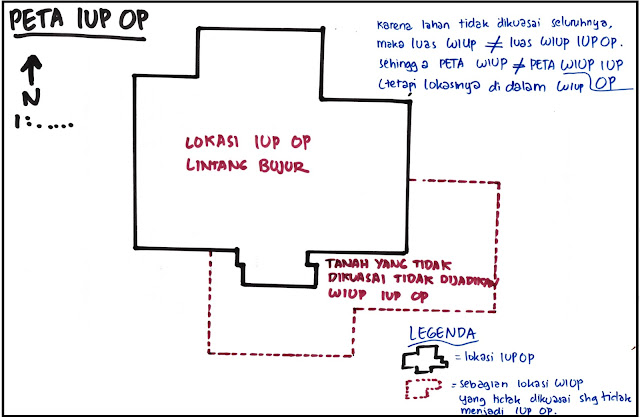 PETA IUP OP
N
1:.....
Karena lahan tidak dikuasai seluruhnya,
maka luas WIUP ≠ luas WIUP IUP OP.
sehingga PETA WIUP ≠ PETA WIUP IUP
(tetapi lokasinya di dalam WIUP OP
LOKASI IUP OP
LINTANG BUJUR
TANAH YANG TIDAK
DIKUASAI TIDAK DIJADIKAN
WIUP IUP OP
LEGENDA
= lokasi IUP OP
= sebagian lokasi WIUP
yang tidak dikuasai shg tidak
menjadi IUP OP.